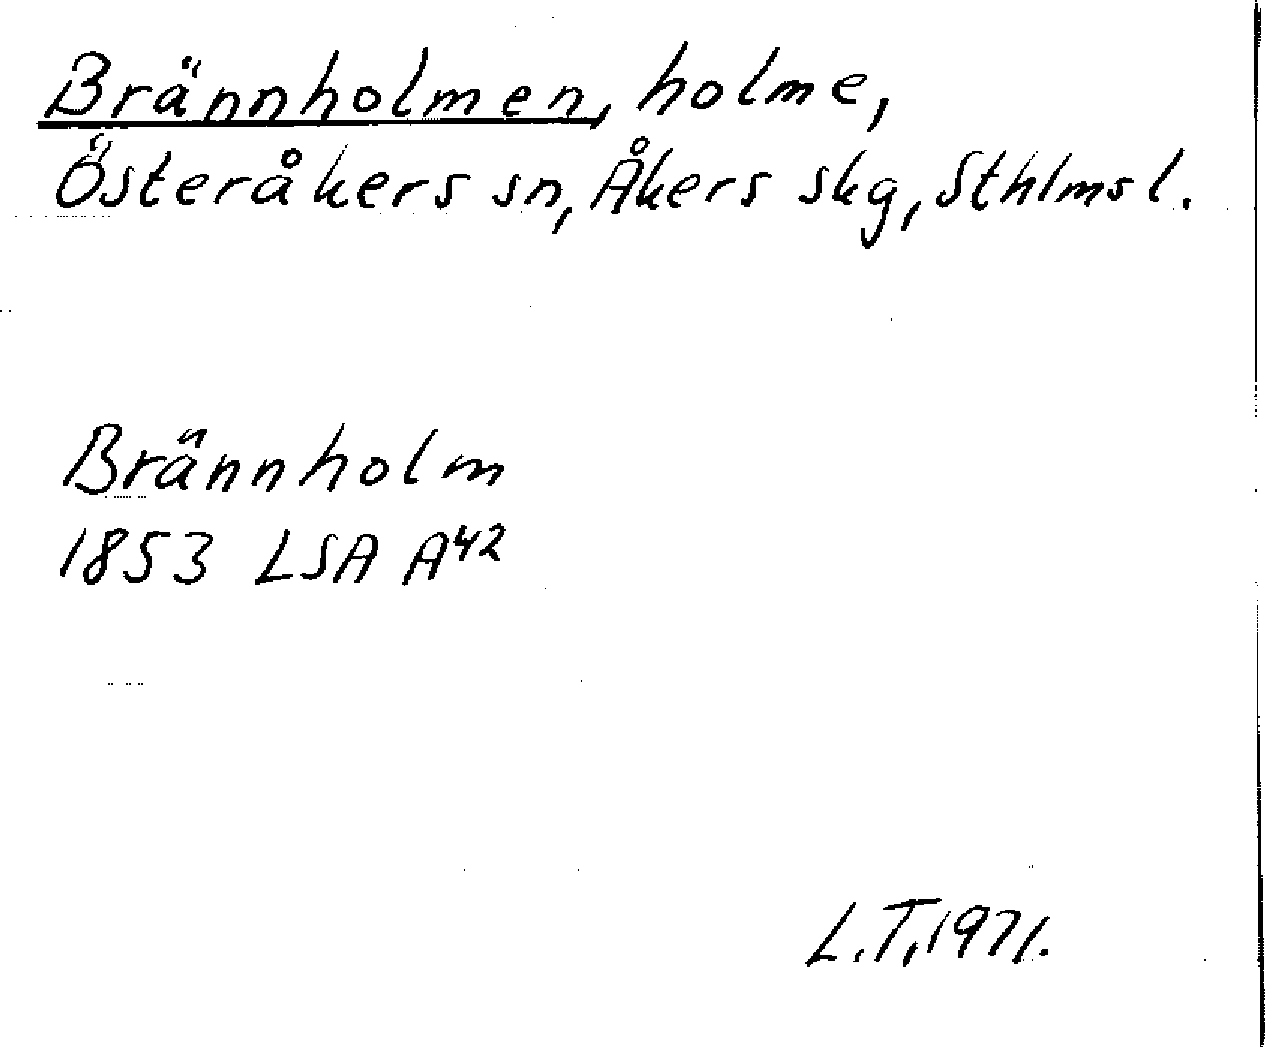 Brännholmen, holme,
Österåkers sn, Åkers skg, Sthlms l.
Brännholm
1853 LSA A42
L.T, 1971.